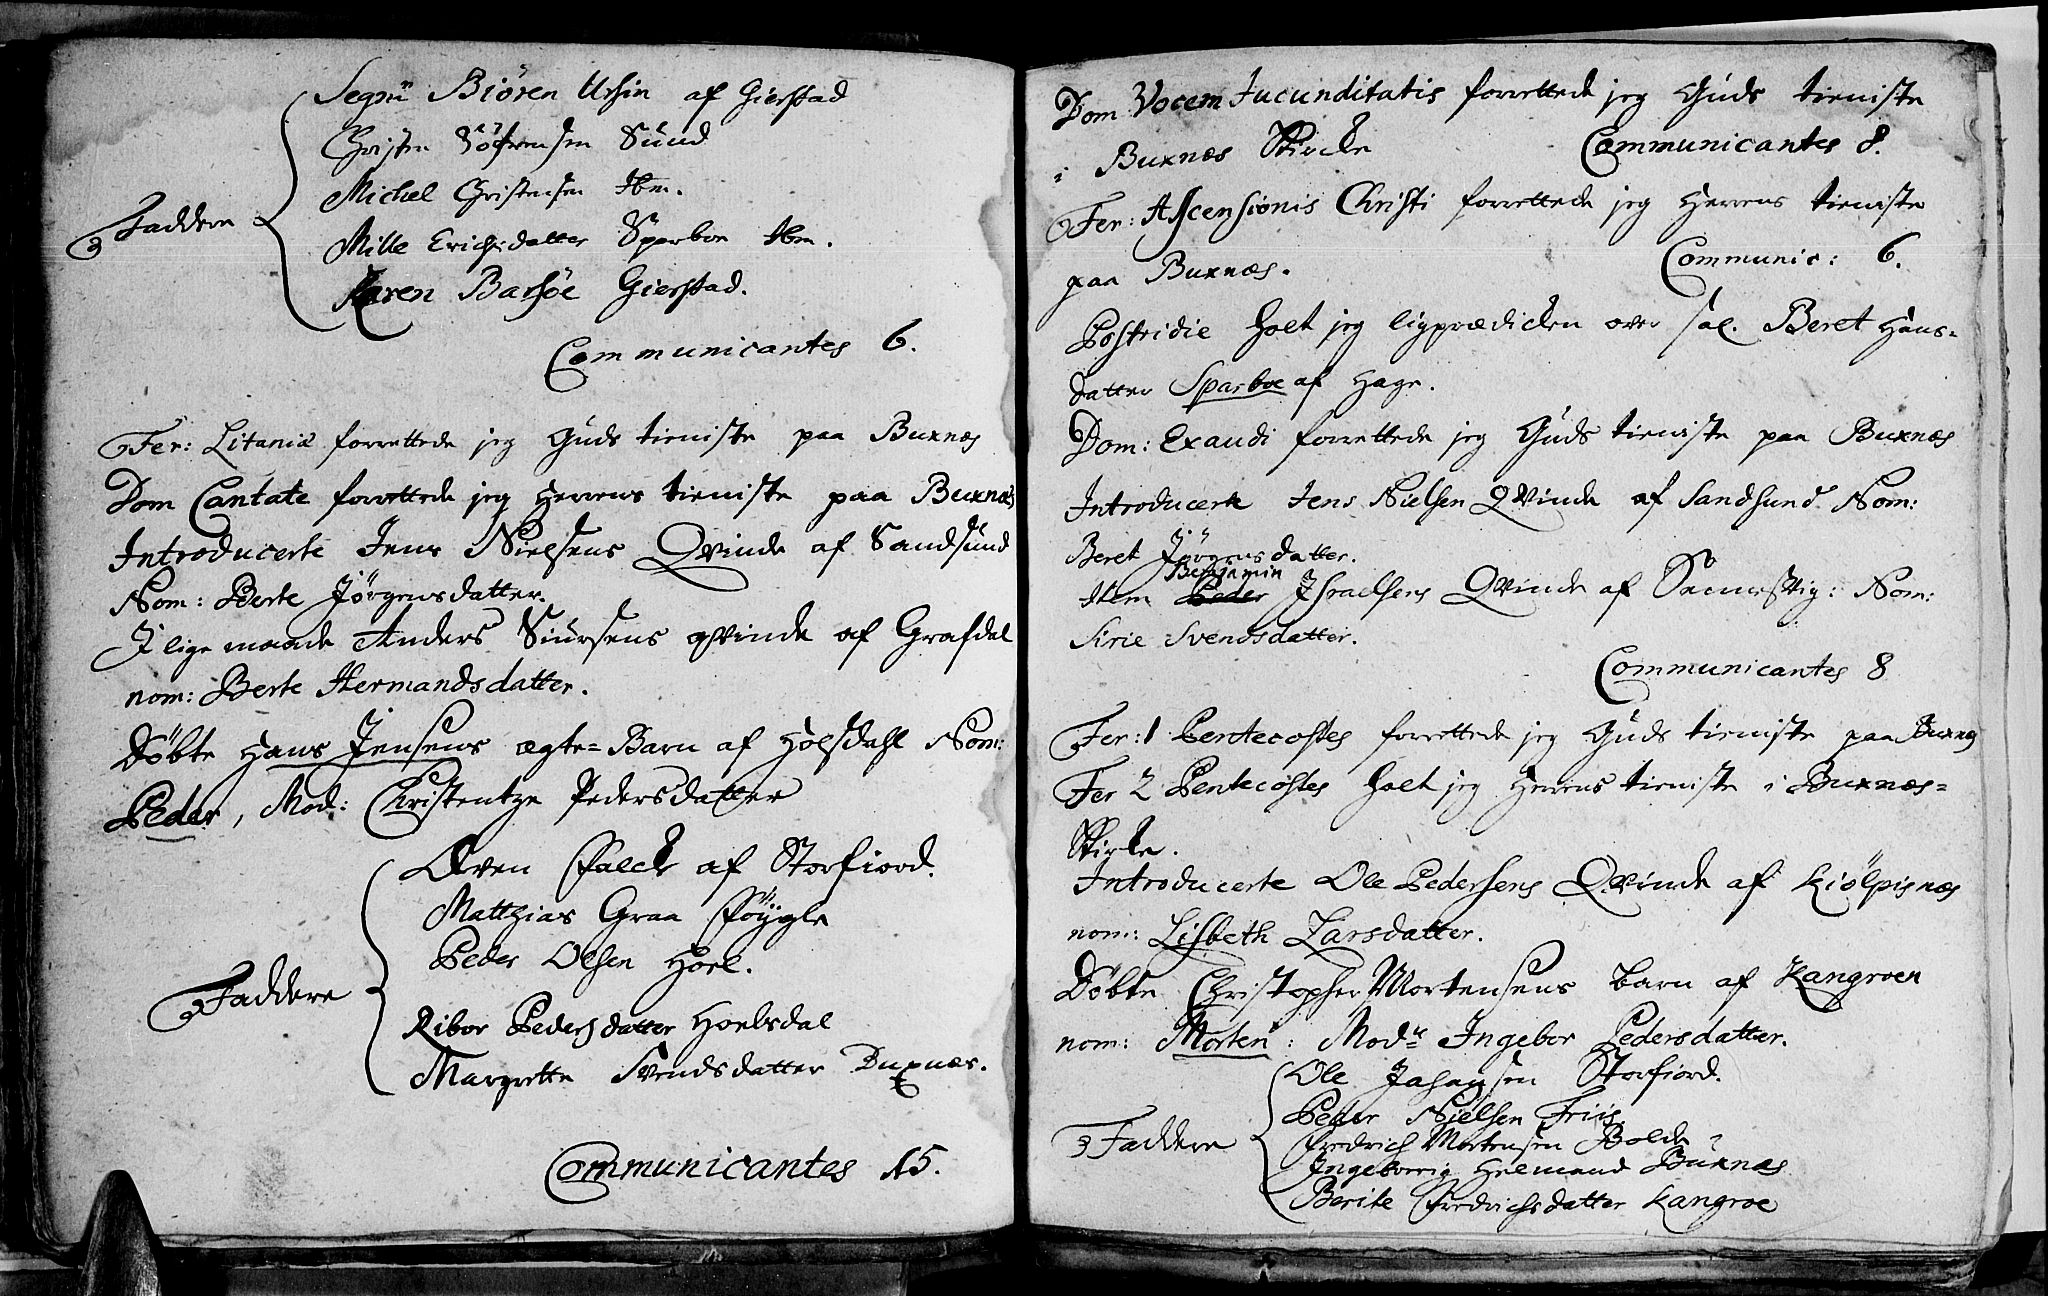 Segnr Biören Ursin af Gierstad
Christen Söfrensen Sund
Michel Christensen Ibm.
Faddere
Mille Erichsdatter Sparboe Ibm.
Karen Barsöe Gierstad.
Communicantes 6.
Fer: Litania forrettede jeg Guds tieniste paa Buxnæs
Dom Cantate forrettede jeg Herrens tieniste paa Buxnæs
Introducerte Jens Nielsens Qvinde af Sandsund
Nom: Berte Jörgensdatter.
I lige maade Anders Siursens qvinde af Grafdal
nom: Berte Hermandsdatter.
Döbte Hans Jensens ægte=Barn af Holsdahl Nom:
Peder, Mod: Christentze Pedersdatter
Even Falck af Storfiord.
Matthias Graa Föygle
Peder Olsen Hoel.
Faddere
Ribor Pedersdatter Holsdal
Margrette Svendsdatter Buxnæs.
Communicantes 15.
Dom Vocem Jucunditatis forrettede jeg Guds tieniste
i Buxnæs Kircke Communicantes 8.
Fer: Ascensionis Christi forrettede jeg Herrens tieniste
paa Buxnæs. Communic: 6.
Postridie holt jeg ligprædicken over sal. Beret Hans-
datter Sparboe af Hage.
Dom: Exaudi forrettede jeg Guds tieniste paa Buxnæs
Introducerte Jens Nielsen Qvinde af Sandsund Nom:
Beret Jörgensdatter.
Benjamin
Item Peder Israelsens Qvinde af Nom:
Sirie Svendsdatter.
Communicantes 8
Fer: 1 Pentecostes forrettede jeg Guds tieniste paa Buxnæs
Fer 2 Pentecostes holt jeg Herrens tieniste i Buxnæs=
Kirke.
Introducerte Ole Pedersens Qvinde af Kiölpisnæs
nom: Lisbeth Larsdatter.
Döbte Christopher Mortensens barn af Kangroen
nom: Morten: Modr Ingebor Pedersdatter.
Ole Johansen Storfiord.
Peder Nielsen Friis
Faddere
Fredrich Mortensen Bolde
Ingeborrig Helmand Buxnæs
Berite Fredrichsdatter Kangroe